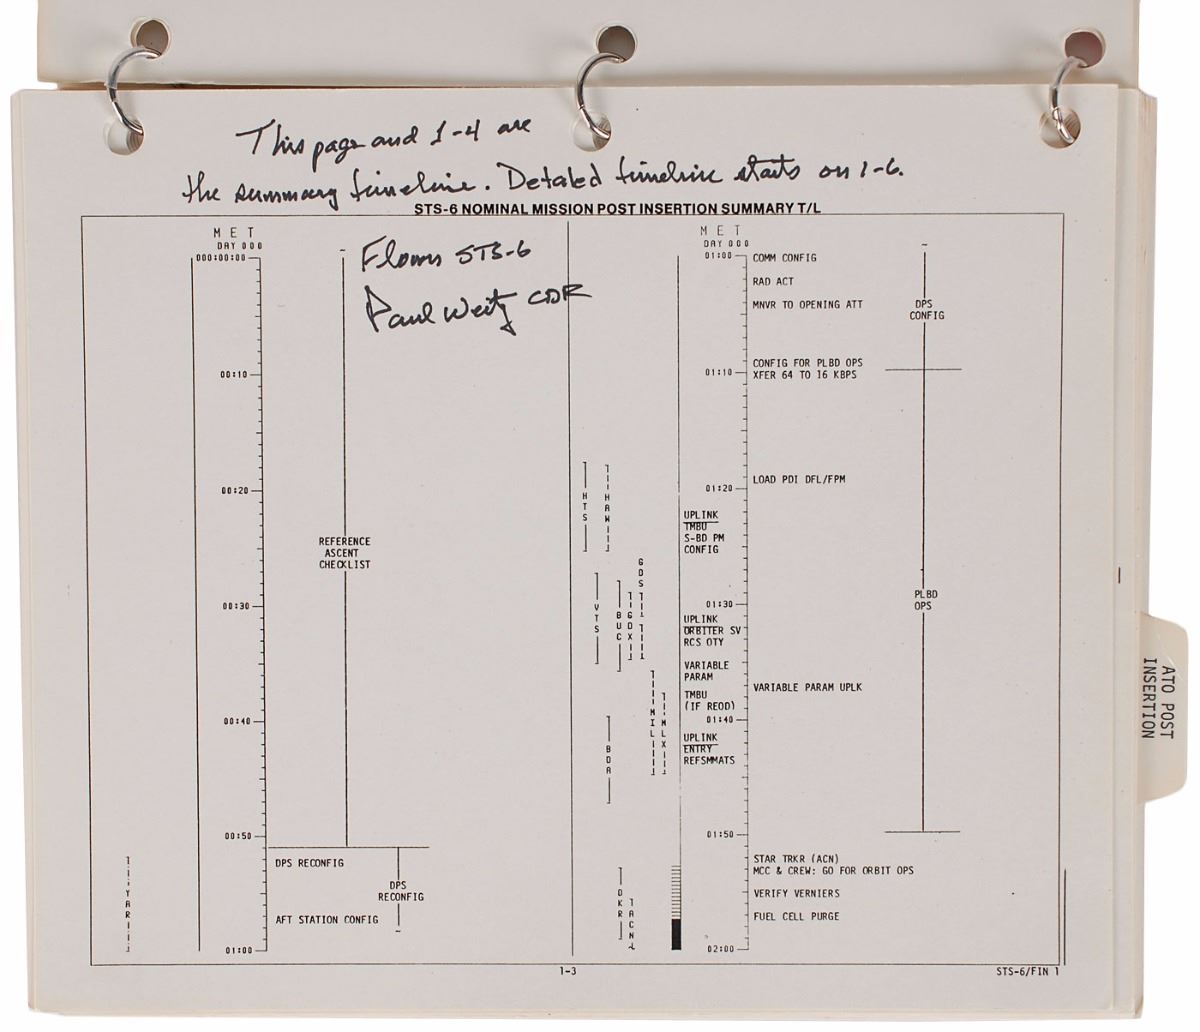 This page and 1-4 are
the summary timeline. Detailed timeline starts on 1-6.
STS-6 NOMINAL MISSION POST INSERTION SUMMARY T/L
MET
DAY 000
000:00:00
Flown STS-6
Paul Weitz CDR
00:10
00:20
REFERENCE
ASCENT
CHECKLIST
00:30
00:40
00:50
DPS RECONFIG
DPS
RECONFIG
AFT STATION CONFIG
YAR
01:00
HTS
HAW
GDS
VTS
BUC
GDX
MIL
MLX
BDA
DKR
ACN
MET
DAY 000
01:00
COMM CONFIG
RAD ACT
MNVR TO OPENING ATT
DPS
CONFIG
CONFIG FOR PLBD OPS
01:10
XFER 64 TO 16 KBPS
LOAD PDI DFL/FPM
01:20
UPLINK
TMBU
S-BD PM
CONFIG
PLBD
OPS
01:30
UPLINK
ORBITER SV
RCS QTY
VARIABLE
PARAM
VARIABLE PARAM UPLK
TMBU
(IF REQD)
01:40
UPLINK
ENTRY
REFSMMATS
01:50
STAR TRKR (ACN)
MCC & CREW: GO FOR ORBIT OPS
VERIFY VERNIERS
FUEL CELL PURGE
02:00
1-3
STS-6/FIN 1
ATO POST
INSERTION